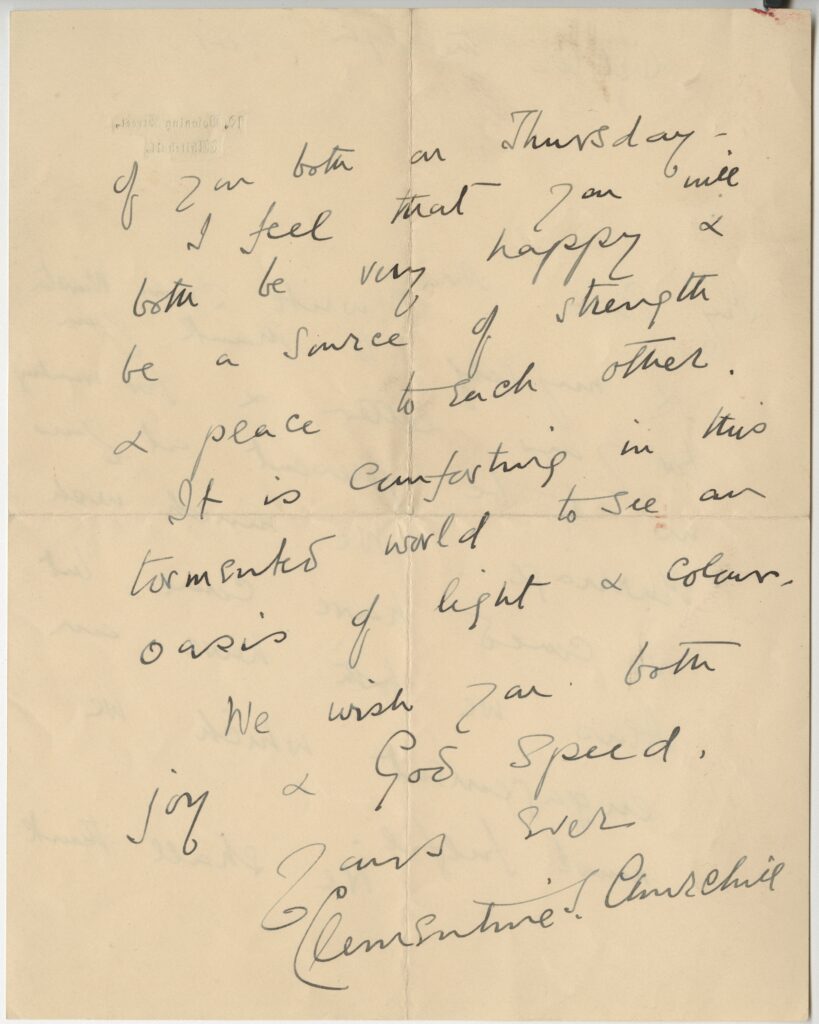 of you both on Thursday -
I feel that you will
both be very happy &
be a source of strength
& peace to Each other.
It is comforting in this
tormented world to See an
oasis of light & colour.
We wish you both
joy & God Speed.
Yours Ever
Clementine S. Churchill
10, Downing Street,
Whitehall.